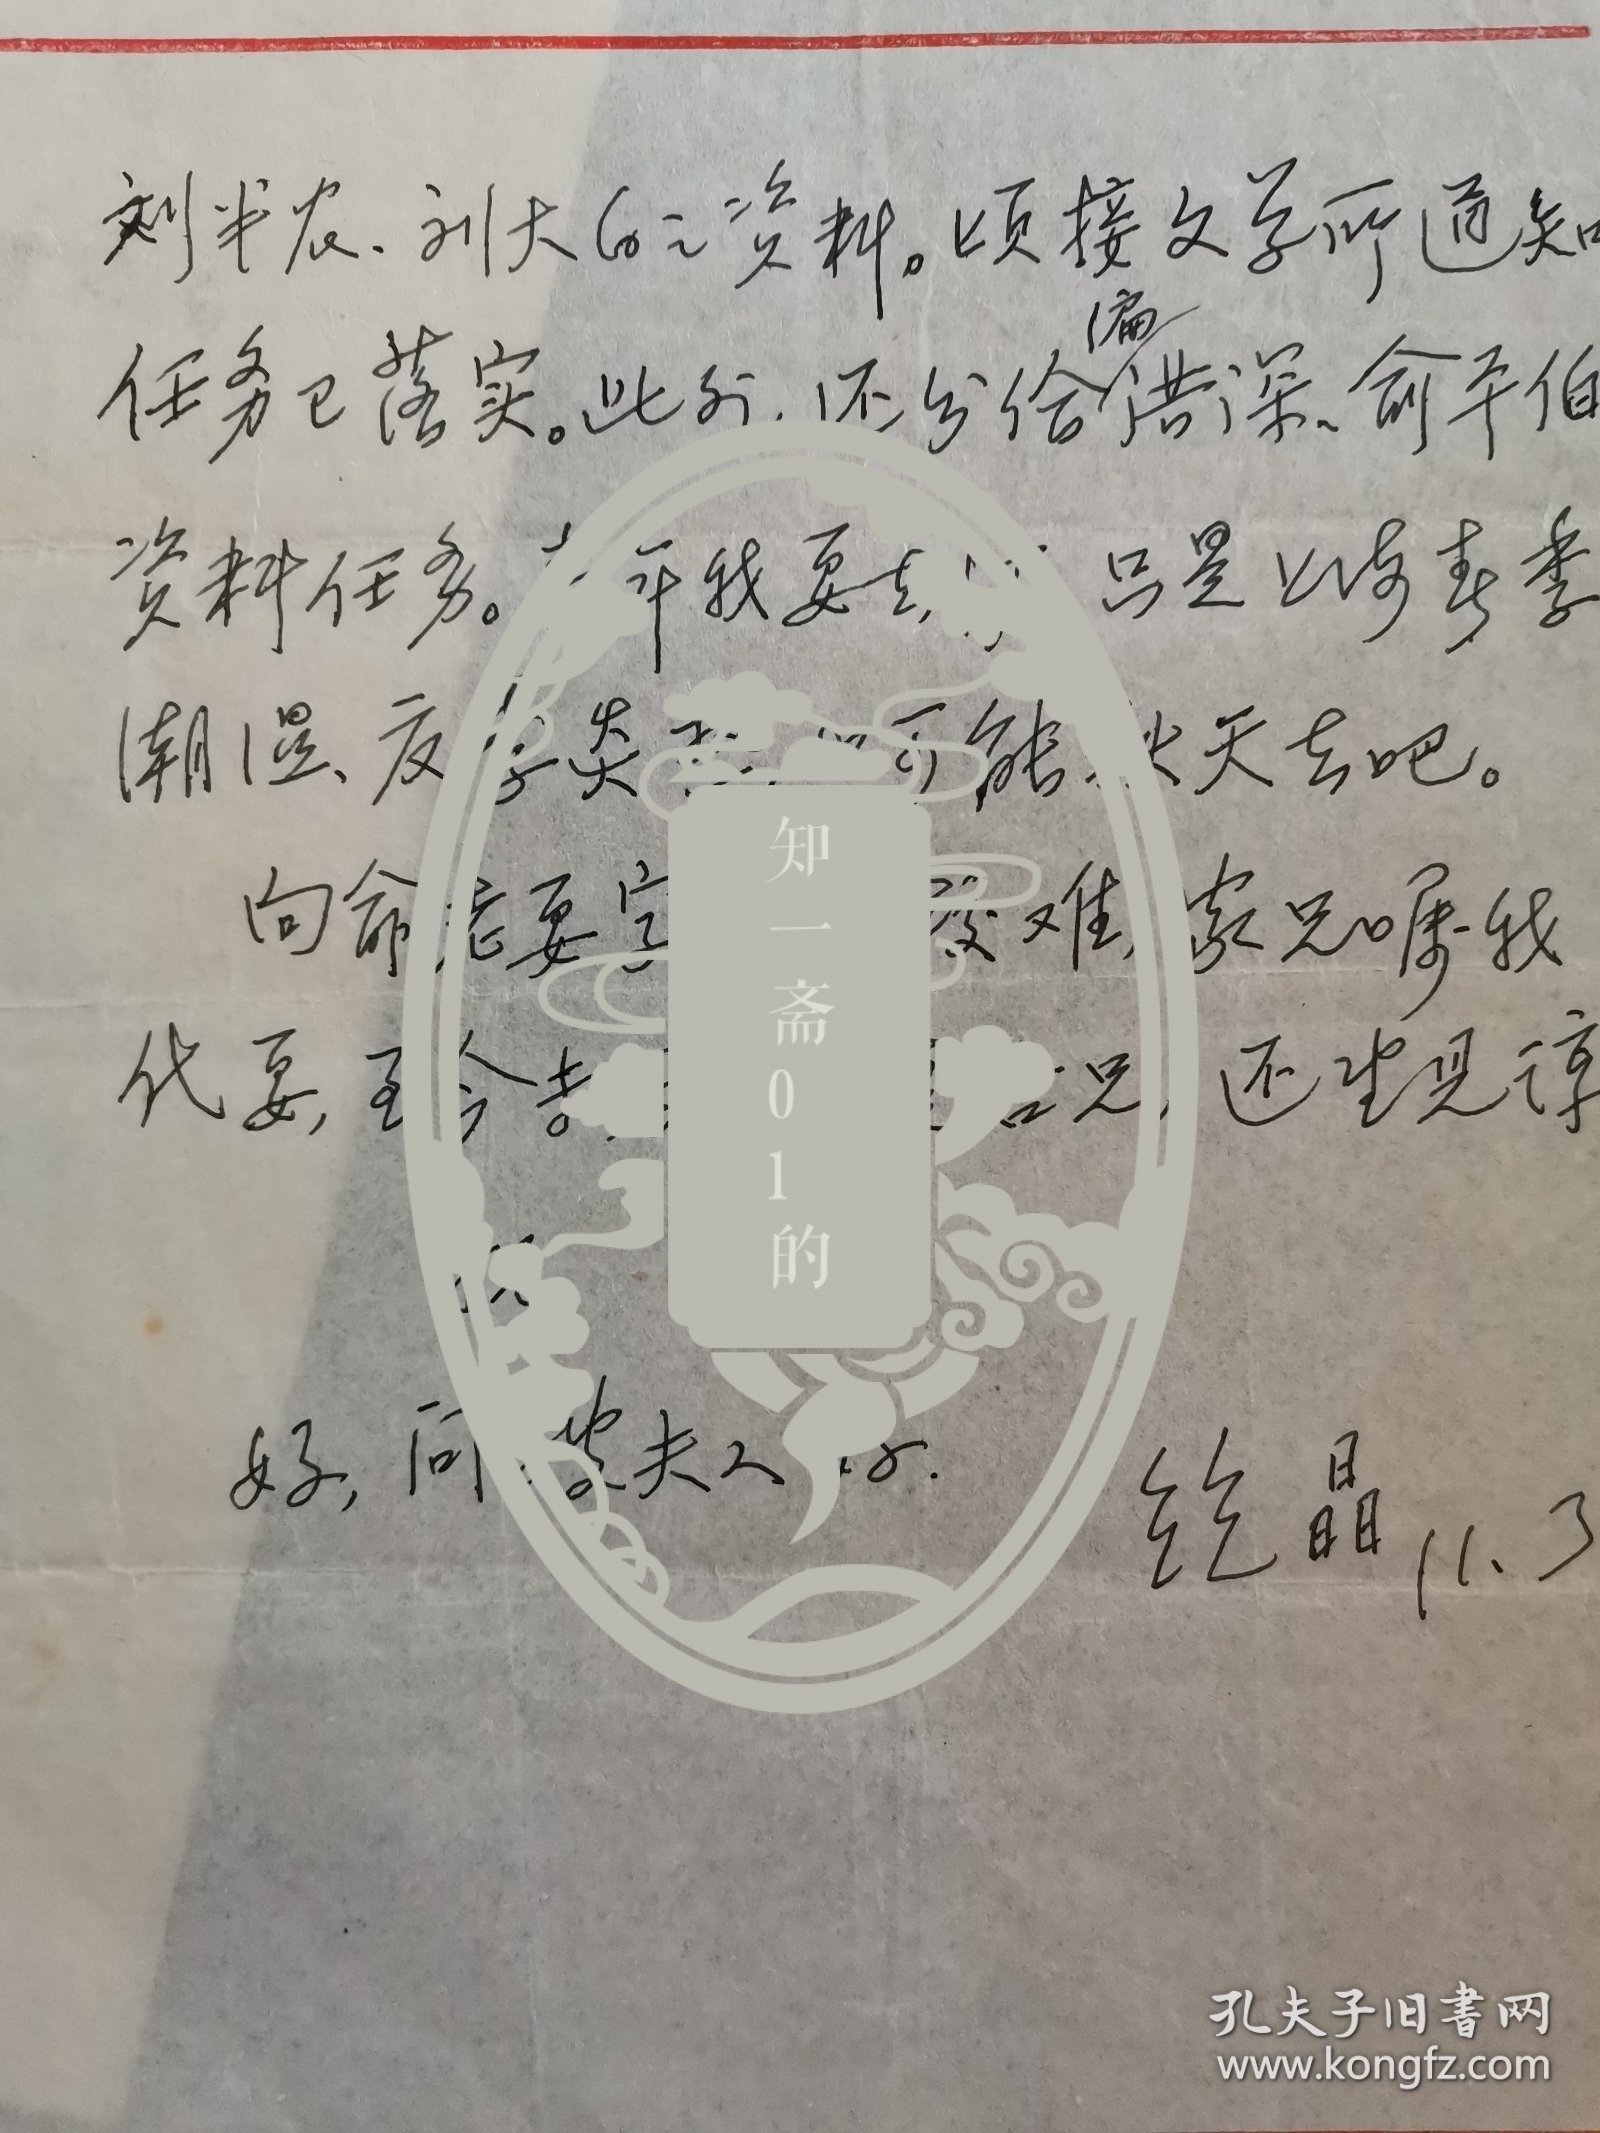 刘半农、刘大白之资料。顷接文学所通知
任务已落实。此外，还分给编洪深、俞平伯
资料任务。年我要去，只是上海春季
潮湿、夏季炎可能秋天去吧。
向俞老要字难，家兄嘱我
代要，至今吉兄，还望见谅
好，问夫人好.
绍晶 11.3
知一斋01的
孔夫子旧书网
www.kongfz.com